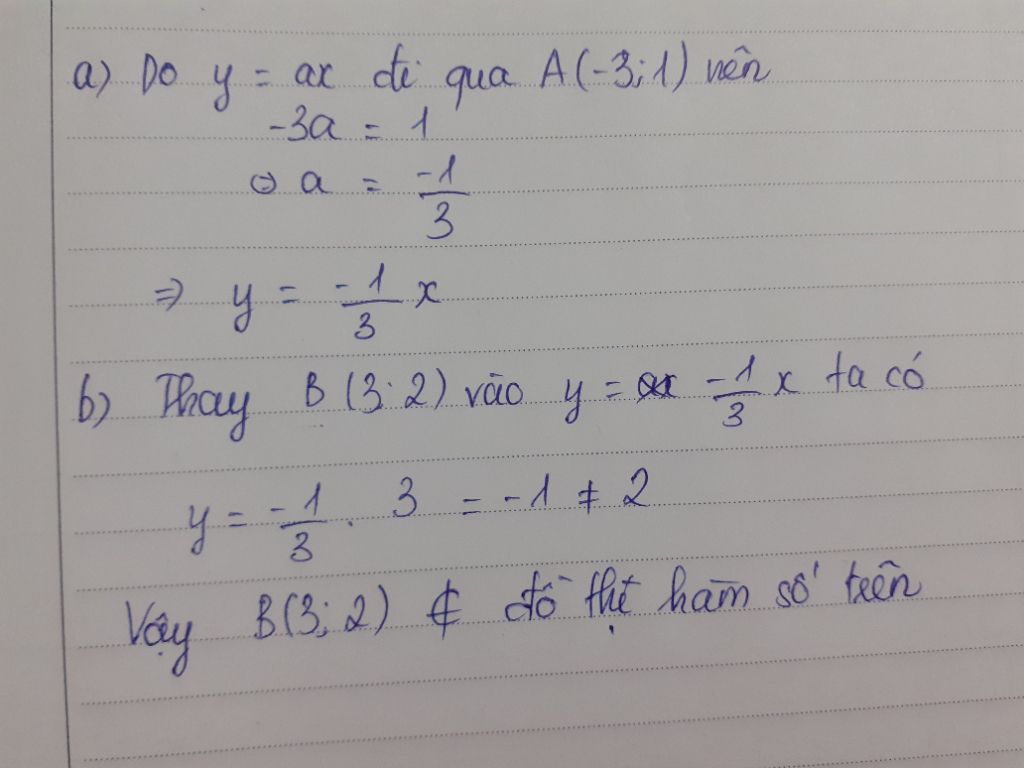 a) Do y = ax đi qua A(-3;1) nên
-3a = 1
⇔ a = -1/3
⇒ y = -1/3 x
b) Thay B (3; 2) vào y = -1/3 x ta có
y = -1/3 . 3 = -1 ≠ 2
Vậy B(3; 2) ∉ đồ thị hàm số trên